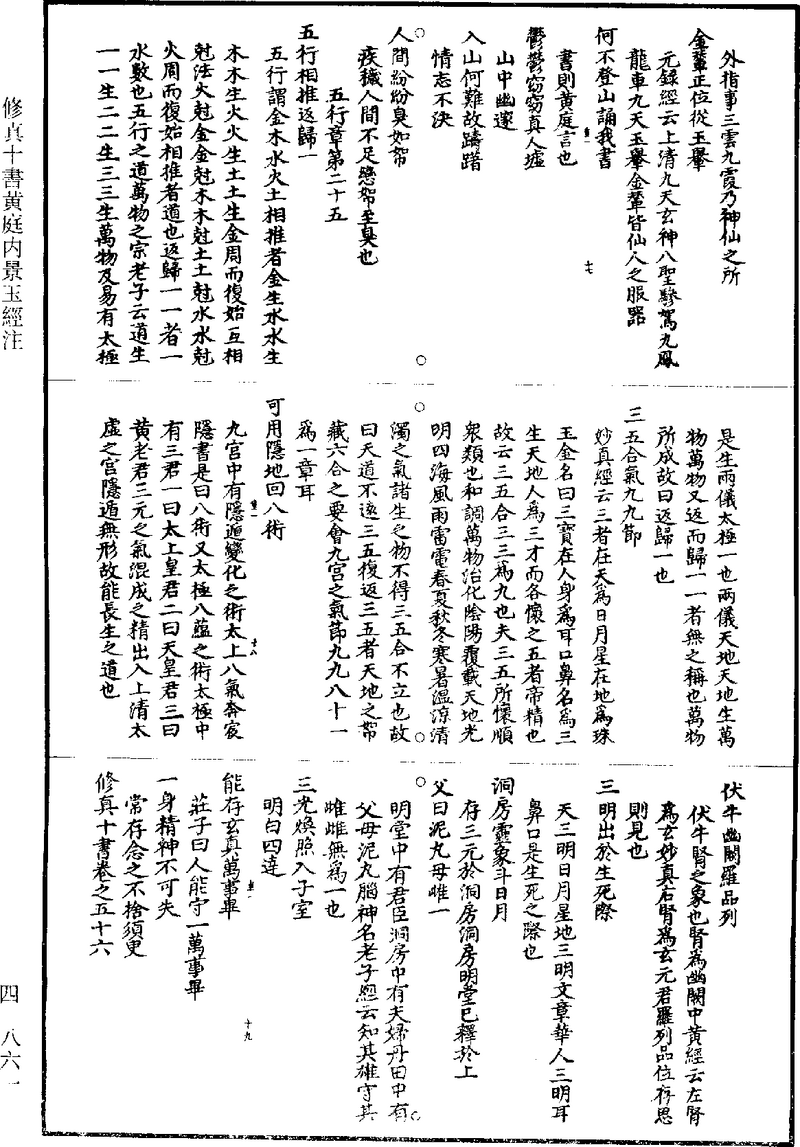 外指事三雲九霞乃神仙之所
金輦正位從玉轝
元錄經云上清九天玄神八聖驂駕九鳳
龍車九天玉轝金輦皆仙人之服器
何不登山誦我書
書則黃庭言也
鬱鬱窈窈真人墟
山中幽邃
入山何難故躊躇
情志不決
人間紛紛臭如帤
疾穢人間不足戀帤至臭也
五行章第二十五
五行相推返歸一
五行謂金木水火土相推者金生水水生
木木生火火生土土生金周而復始互相
尅法火尅金金尅木木尅土土尅水水尅
火周而復始相推者道也返歸一一者一
水數也五行之道萬物之宗老子云道生
一一生二二生三三生萬物及易有太極
是生兩儀太極一也兩儀天地天地生萬
物萬物又返而歸一一者無之稱也萬物
所成故曰返歸一也
三五合氣九九節
妙真經云三者在天為日月星在地為珠
玉金名曰三寶在人身為耳口鼻名為三
生天地人為三才而各懷之五者帝精也
故云三五合三三為九也夫三五所懷順
眾類也和調萬物治化陰陽覆載天地光
明四海風雨雷電春夏秋冬寒暑溫涼清
濁之氣諸生之物不得三五合不立也故
曰天道不遠三五復返三五者天地之帤
藏六合之要會九宮之氣節九九八十一
為一章耳
可用隱地回八術
九宮中有隱遁變化之術太上八氣奔宸
隱書是曰八術又太極八蘊之術太極中
有三君一曰太上皇君二曰天皇君三曰
黃老君三元之氣混成之精出入上清太
虛之宮隱遁無形故能長生之道也
伏牛幽闕羅品列
伏牛腎之象也腎為幽闕中黃經云左腎
為玄妙真右腎為玄元君羅列品位存思
則見也
三明出於生死際
天三明日月星地三明文章華人三明耳
鼻口是生死之際也
洞房靈象斗日月
存三元於洞房洞房明堂已釋於上
父曰泥丸母雌一
明堂中有君臣洞房中有夫婦丹田中有
父母泥丸腦神名老子經云知其雄守其
雌雌無為一也
三光煥照入子室
明白四達
能存玄真萬事畢
莊子曰人能守一萬事畢
一身精神不可失
常存念之不捨須臾
修真十書卷之五十六
十七
十八
十九
修真十書黃庭內景玉經注
四 八六一